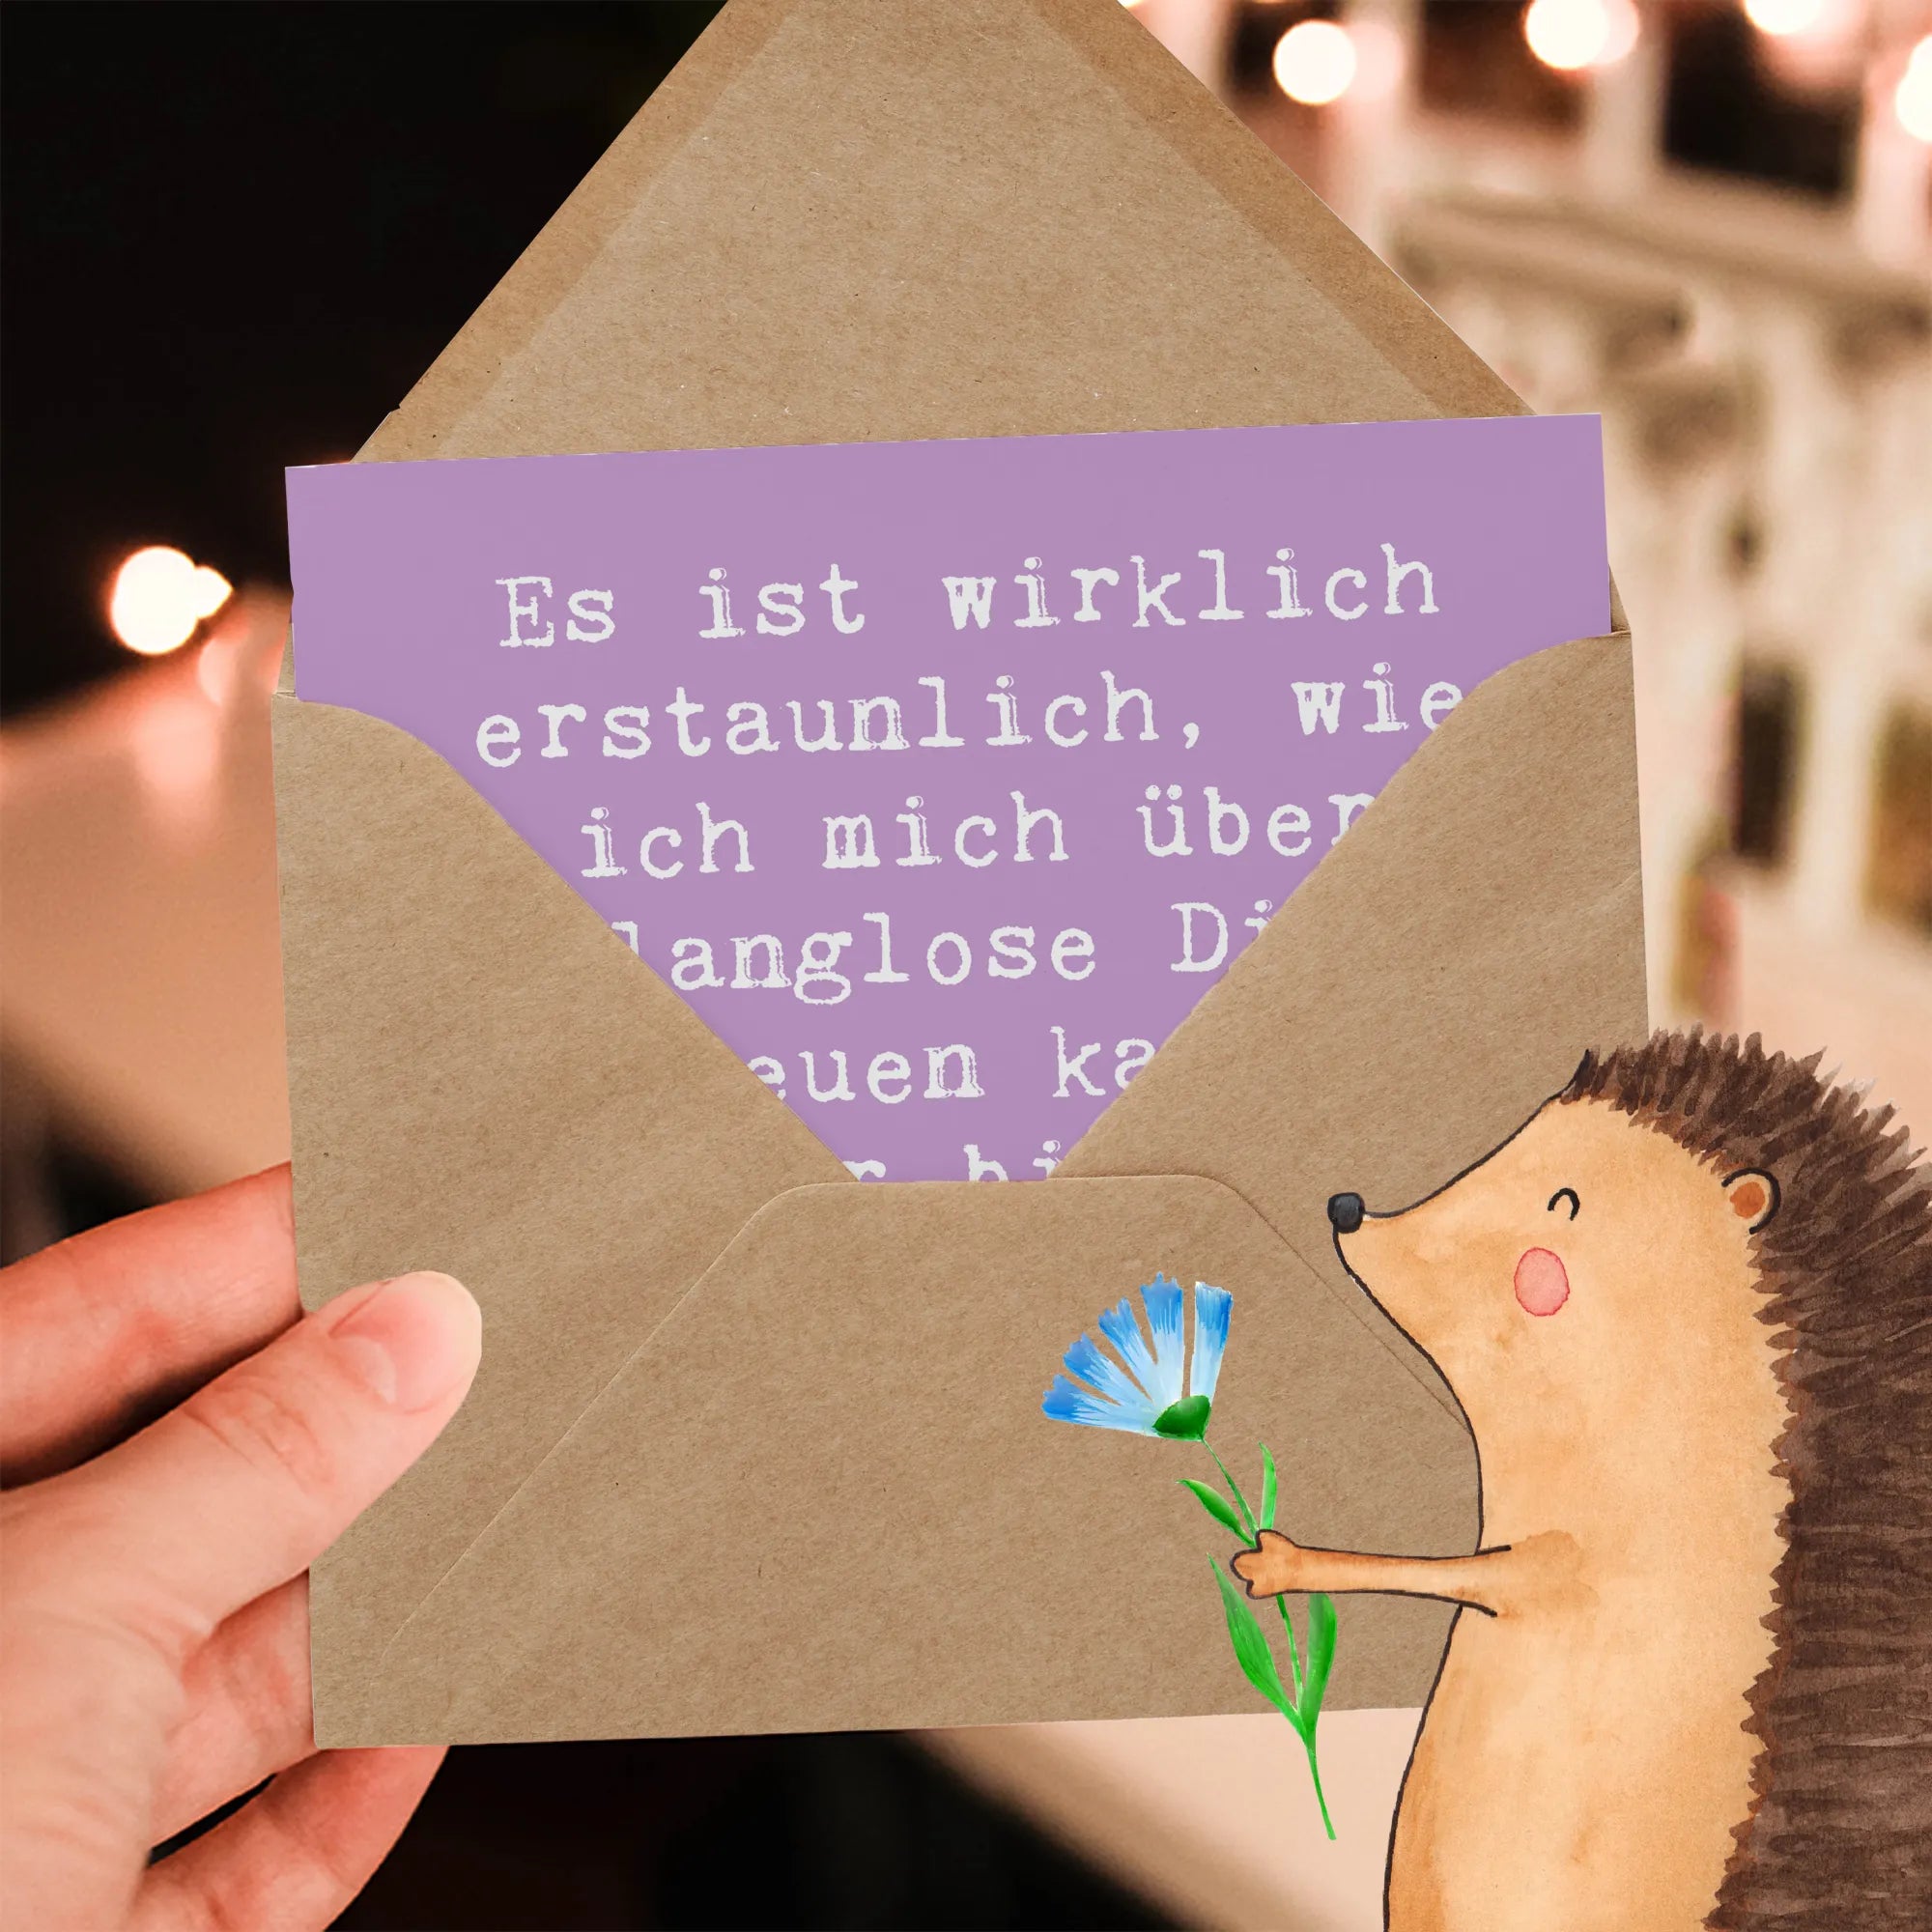 Es ist wirklich
erstaunlich, wie
ich mich über
langlose Di
euen ka